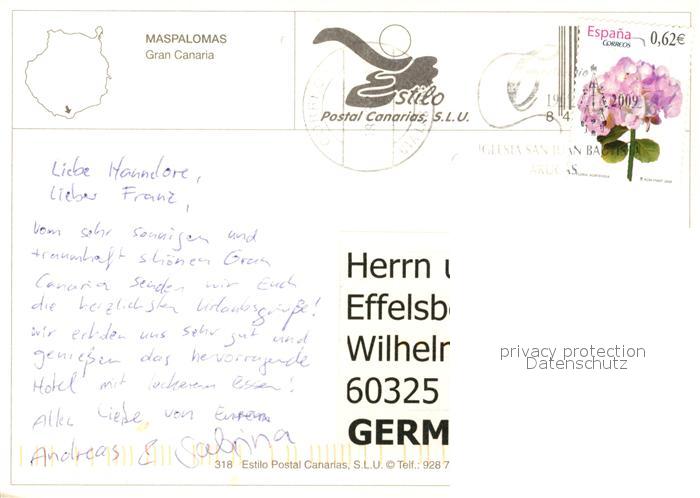 MASPALOMAS
Gran Canaria
Estilo
Postal Canarias, S.L.U.
España
CORREOS
0,62€
2009
IGLESIA SAN JUAN BAUTISTA
ARUCAS
Liebe Hanndore,
Lieber Franz,
vom sehr sonnigen und
traumhaft schönen Gran
Canaria senden wir Euch
die herzlichsten Urlaubsgrüße!
wir erholen uns sehr gut und
genießen das hervorragende
Hotel mit leckerem Essen!
Alles Liebe von Euren
Andreas & Sabina
Herrn u
Effelsbe
Wilhelm
60325
GERM
privacy protection
Datenschutz
318 Estilo Postal Canarias, S.L.U. © Telf.: 928 7